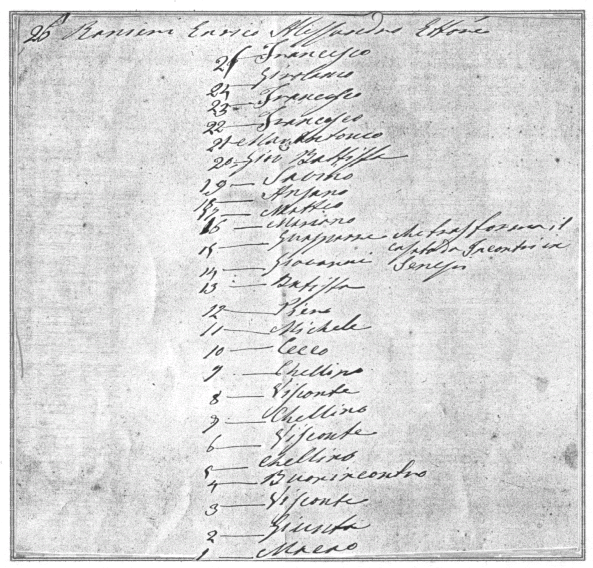 26 Ranieri Enrico Alessandro Ettore
25 Francesco
Girolamo
24 — Francesco
23 —
22 — Francesco
21 Marcantonio
20 — Gio Battista
19 — Savino
18 — Ansano
17 — Matteo
16 — Mariano
15 — Guasparre che trasforma il
casato da Incontri in
14 — Giovanni Senesi
13 — Batissa
12 — Piero
11 — Michele
10 — Cecco
9 — Chellino
8 — Visconte
7 — Chellino
6 — Visconte
5 — Chellino
4 — Buonincontro
3 — Visconte
2 — Giunta
1 — Moreno